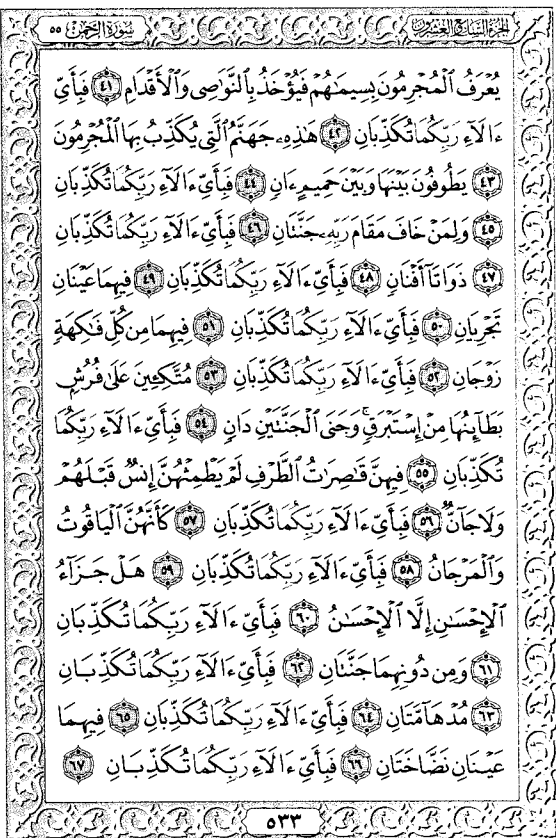 الجزء السابع والعشرون سورة الرحمن ٥٥
يُعْرَفُ ٱلْمُجْرِمُونَ بِسِيمَٰهُمْ فَيُؤْخَذُ بِٱلنَّوَٰصِى وَٱلْأَقْدَامِ ٤١ فَبِأَىِّ
ءَالَآءِ رَبِّكُمَا تُكَذِّبَانِ ٤٢ هَٰذِهِۦ جَهَنَّمُ ٱلَّتِى يُكَذِّبُ بِهَا ٱلْمُجْرِمُونَ
٤٣ يَطُوفُونَ بَيْنَهَا وَبَيْنَ حَمِيمٍ ءَانٍ ٤٤ فَبِأَىِّ ءَالَآءِ رَبِّكُمَا تُكَذِّبَانِ
٤٥ وَلِمَنْ خَافَ مَقَامَ رَبِّهِۦ جَنَّتَانِ ٤٦ فَبِأَىِّ ءَالَآءِ رَبِّكُمَا تُكَذِّبَانِ
٤٧ ذَوَاتَآ أَفْنَانٍ ٤٨ فَبِأَىِّ ءَالَآءِ رَبِّكُمَا تُكَذِّبَانِ ٤٩ فِيهِمَا عَيْنَانِ
تَجْرِيَانِ ٥٠ فَبِأَىِّ ءَالَآءِ رَبِّكُمَا تُكَذِّبَانِ ٥١ فِيهِمَا مِن كُلِّ فَٰكِهَةٍ
زَوْجَانِ ٥٢ فَبِأَىِّ ءَالَآءِ رَبِّكُمَا تُكَذِّبَانِ ٥٣ مُتَّكِـِٔينَ عَلَىٰ فُرُشٍۭ
بَطَآئِنُهَا مِنْ إِسْتَبْرَقٍ ۚ وَجَنَى ٱلْجَنَّتَيْنِ دَانٍ ٥٤ فَبِأَىِّ ءَالَآءِ رَبِّكُمَا
تُكَذِّبَانِ ٥٥ فِيهِنَّ قَٰصِرَٰتُ ٱلطَّرْفِ لَمْ يَطْمِثْهُنَّ إِنسٌ قَبْلَهُمْ
وَلَا جَآنٌّ ٥٦ فَبِأَىِّ ءَالَآءِ رَبِّكُمَا تُكَذِّبَانِ ٥٧ كَأَنَّهُنَّ ٱلْيَاقُوتُ
وَٱلْمَرْجَانُ ٥٨ فَبِأَىِّ ءَالَآءِ رَبِّكُمَا تُكَذِّبَانِ ٥٩ هَلْ جَزَآءُ
ٱلْإِحْسَٰنِ إِلَّا ٱلْإِحْسَٰنُ ٦٠ فَبِأَىِّ ءَالَآءِ رَبِّكُمَا تُكَذِّبَانِ
٦١ وَمِن دُونِهِمَا جَنَّتَانِ ٦٢ فَبِأَىِّ ءَالَآءِ رَبِّكُمَا تُكَذِّبَانِ
٦٣ مُدْهَآمَّتَانِ ٦٤ فَبِأَىِّ ءَالَآءِ رَبِّكُمَا تُكَذِّبَانِ ٦٥ فِيهِمَا
عَيْنَانِ نَضَّاخَتَانِ ٦٦ فَبِأَىِّ ءَالَآءِ رَبِّكُمَا تُكَذِّبَانِ ٦٧
٥٣٣